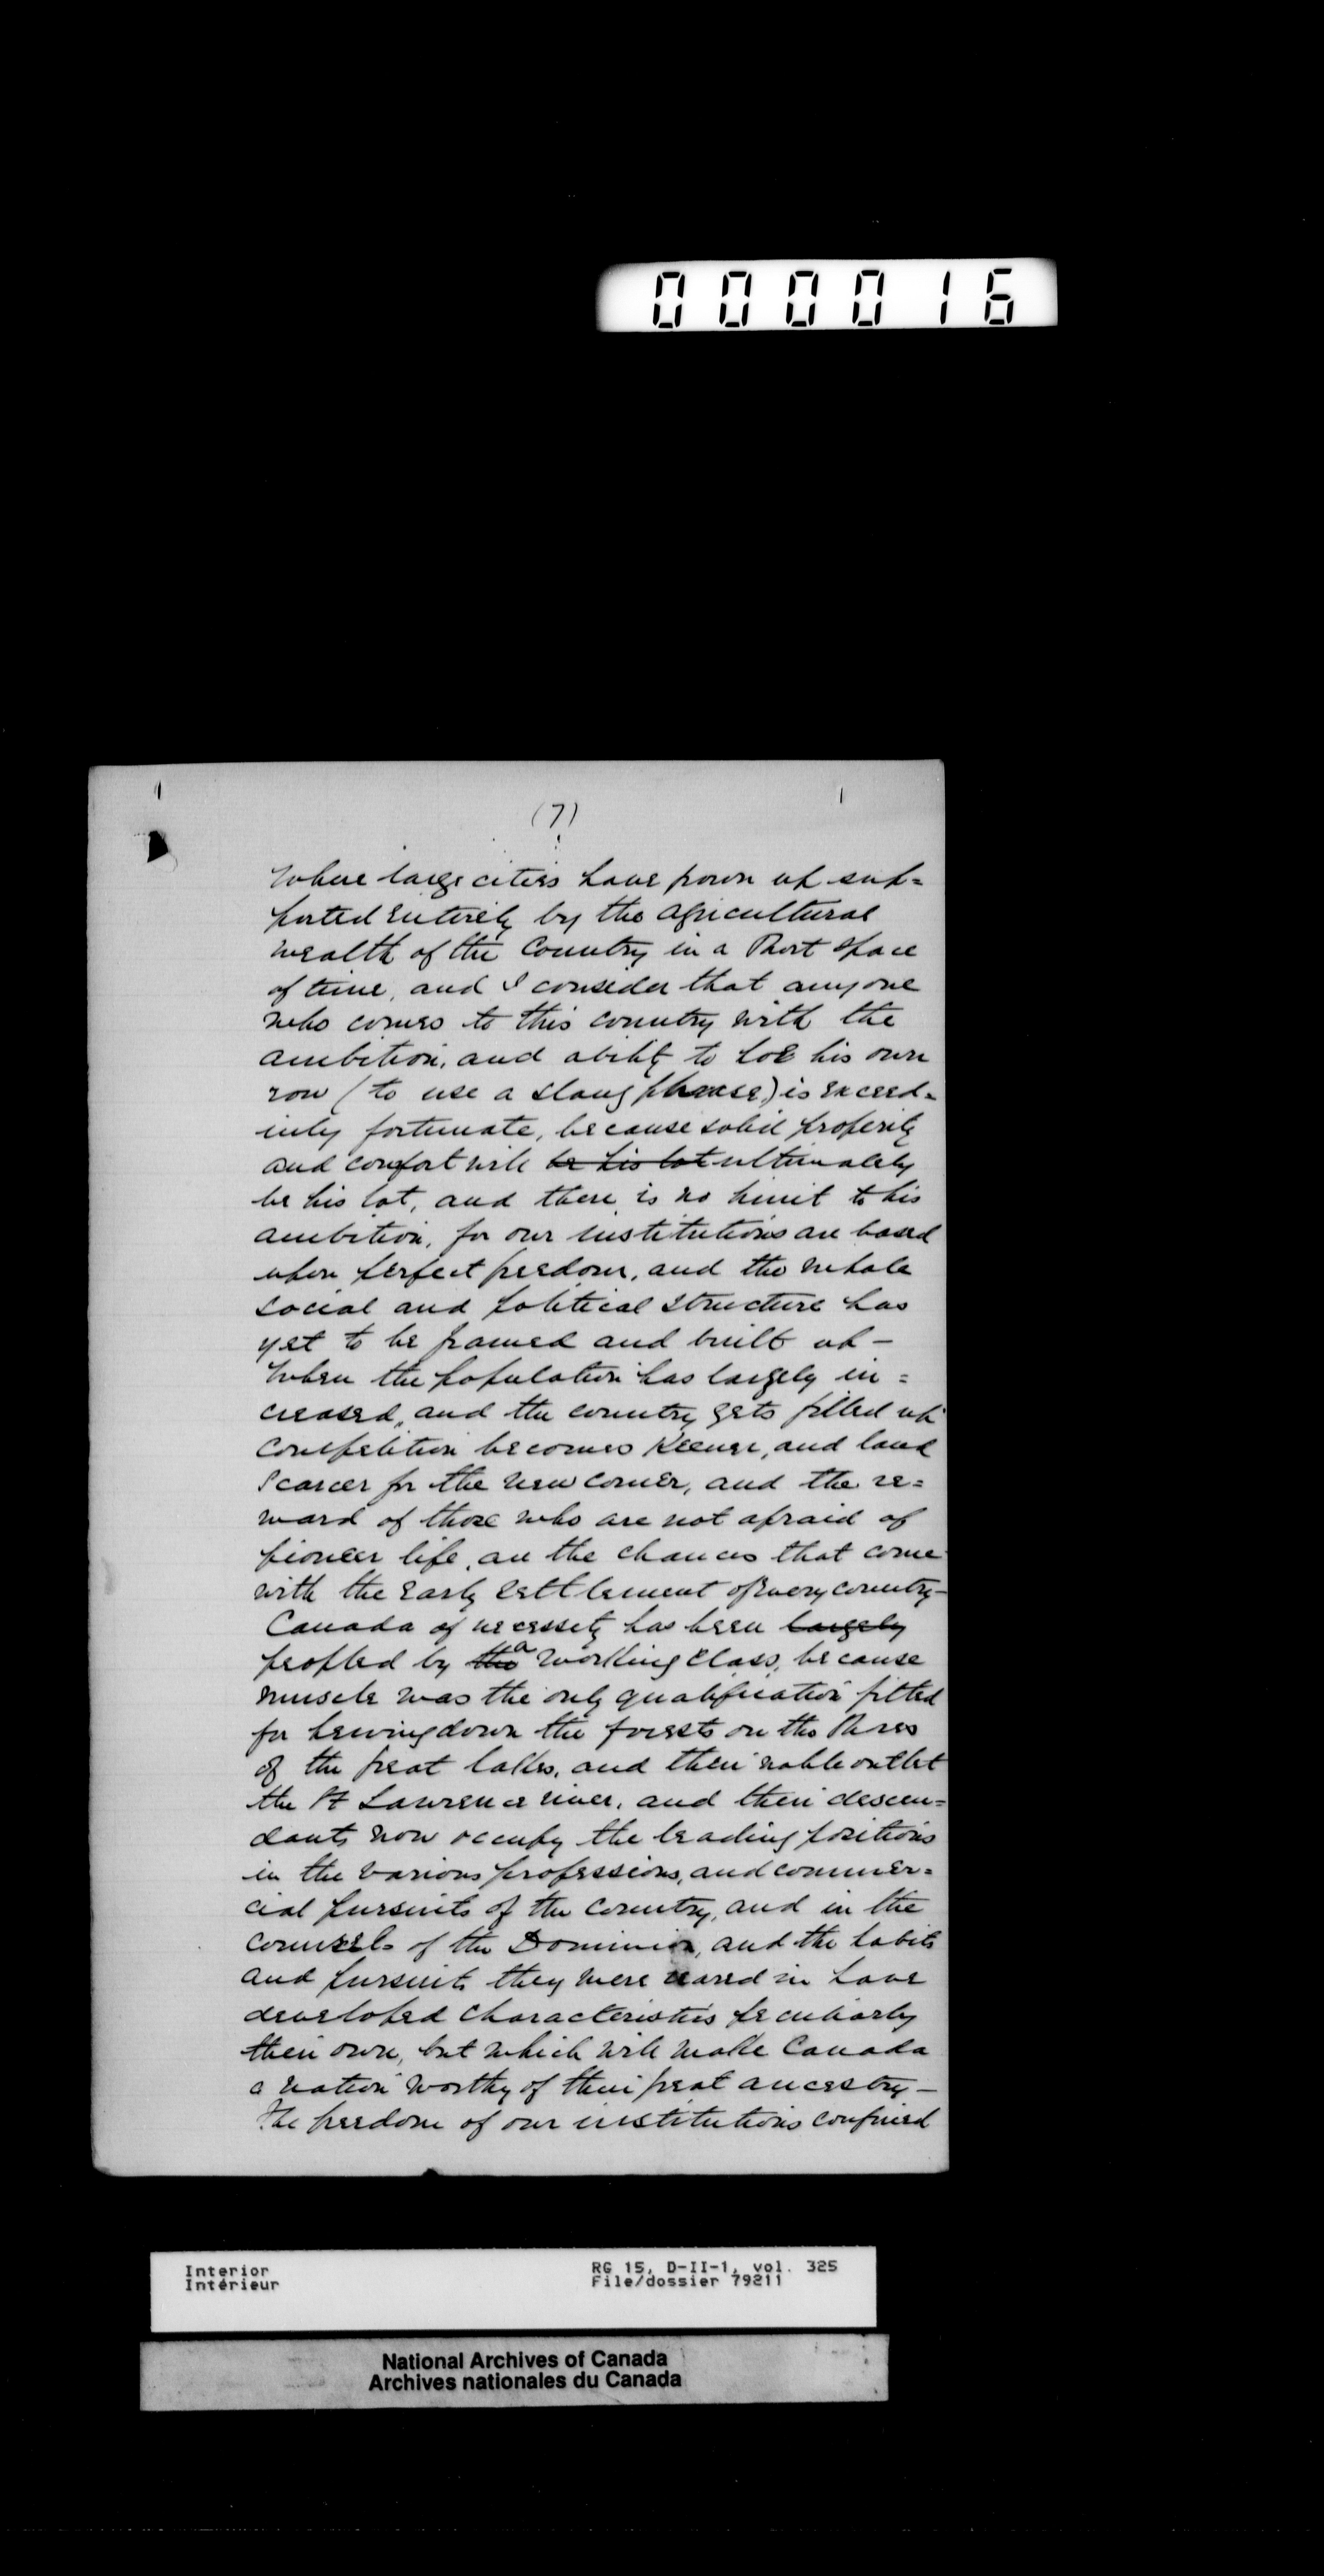 000016
(7)
where large cities have grown up sup=
ported entirely by the agricultural
wealth of the country in a short space
of time, and I consider that anyone
who comes to this country with the
ambition, and ability to hoe his own
row (to use a slang phrase) is exceed=
ingly fortunate, because solid prosperity
and comfort will be his lot ultimately
be his lot, and there is no limit to his
ambition, for our institutions are based
upon perfect freedom, and the whole
social and political structure has
yet to be framed and built up –
When the population has largely in=
creased, and the country gets filled up
competition becomes keener, and land
scarcer for the new comer, and the re=
ward of those who are not afraid of
pioneer life, are the chances that come
with the early settlement of every country –
Canada of necessity has been largely
peopled by the a working class, because
muscle was the only qualification fitted
for hewing down the forests on the shores
of the great lakes, and their noble outlet
the St Lawrence river, and their descen=
dants now occupy the leading positions
in the various professions, and commer=
cial pursuits of the country, and in the
counsels of the Dominion, and the habits
and pursuits they were reared in have
developed characteristics peculiarly
their own, but which will make Canada
a nation worthy of their great ancestry –
The freedom of our institutions confined
Interior
Intérieur
RG 15, D-II-1, vol. 325
File/dossier 79211
National Archives of Canada
Archives nationales du Canada